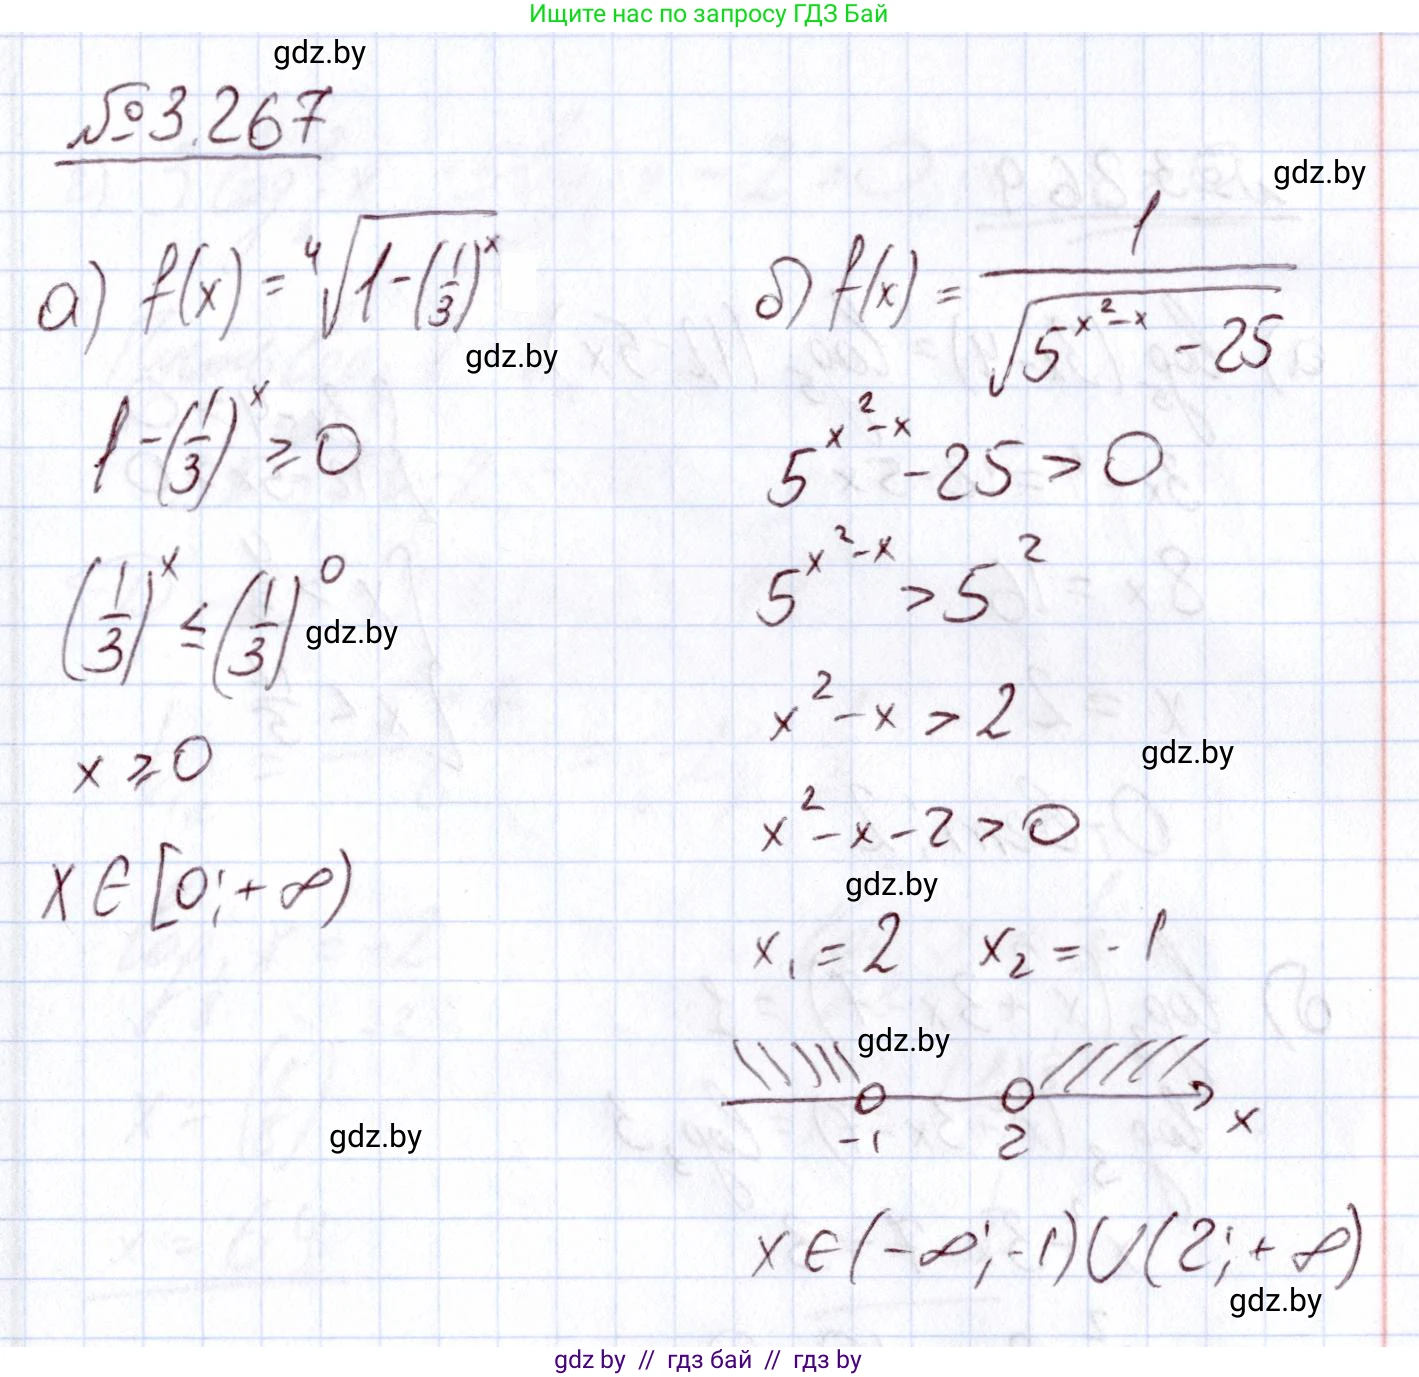 Ищите нас по запросу ГДЗ Бай
gdz.by
№3.267
gdz.by
а) f(x) = ⁴√(1-(1/3)^x)
gdz.by
1-(1/3)^x ≥ 0
(1/3)^x ≤ (1/3)^0
gdz.by
x ≥ 0
x ∈ [0; +∞)
gdz.by
б) f(x) = 1/√(5^(x²-x) - 25)
5^(x²-x) - 25 > 0
5^(x²-x) > 5²
x² - x > 2
gdz.by
x² - x - 2 > 0
gdz.by
x₁ = 2 x₂ = -1
gdz.by
-1 2 x
x ∈ (-∞; -1) ∪ (2; +∞)
gdz.by
gdz by // гдз бай // гдз by